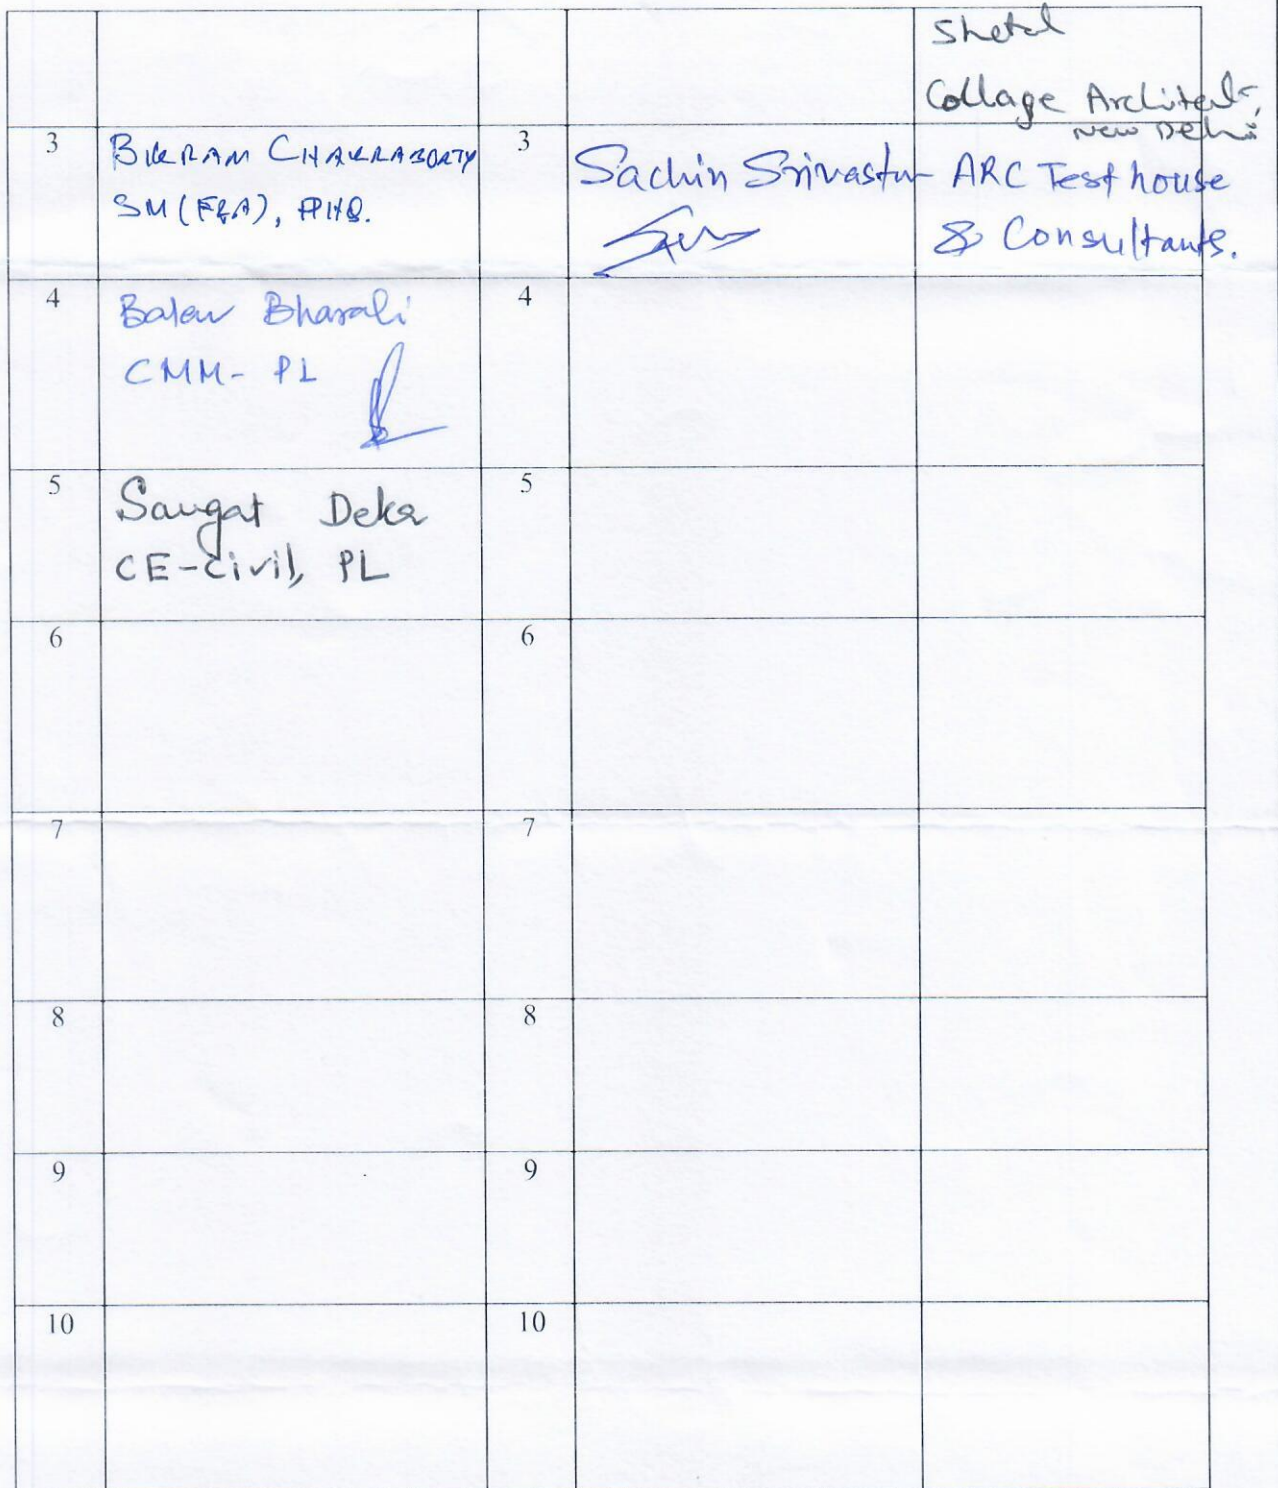 Shetal
Collage Architects,
New Delhi
3 BIKRAM CHAKRABORTY 3 Sachin Srivastav ARC Test house
SM (F&A), PHQ. & Consultants.
4 Bharali 4
CMM- PL
5 Saugat Deka 5
CE-Civil, PL
6 6
7 7
8 8
9 9
10 10